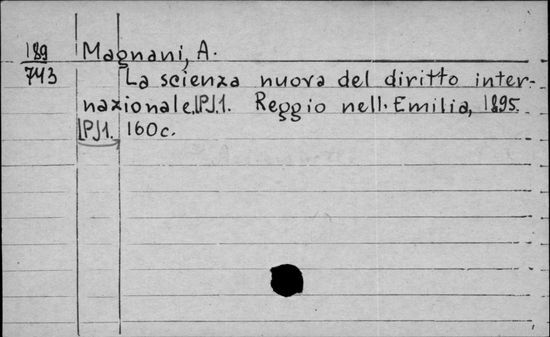 189 Magnani, A.
743 La scienza nuova del diritto inter-
nazionale.[P.]1. Reggio nell. Emilia, 1895.
[P.]1. 160c.